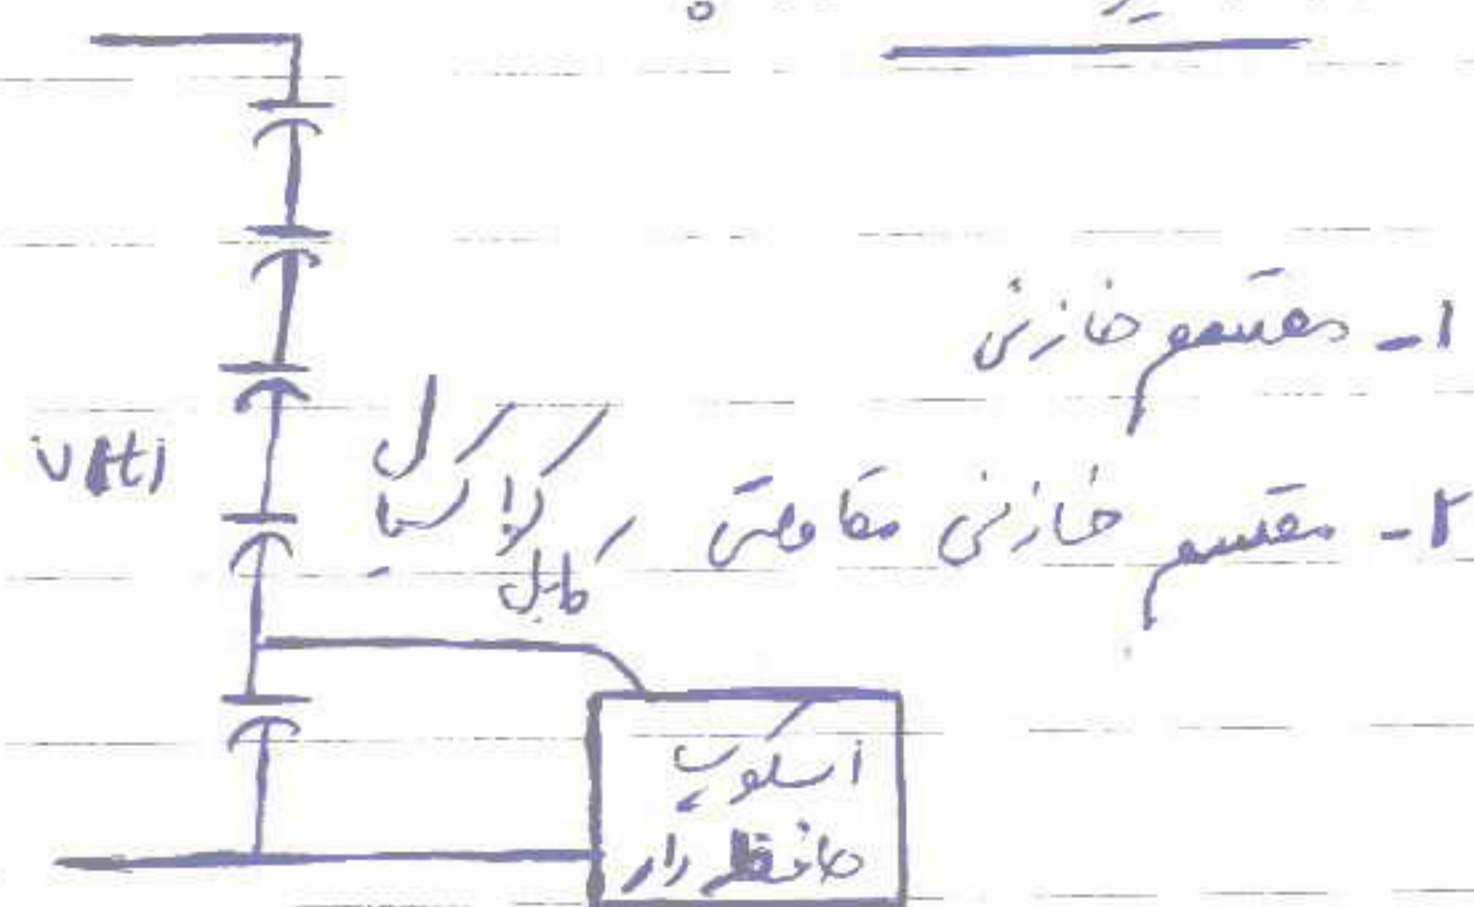 ۱- مقسم خازنی
۲- مقسم خازنی مقاومتی
کابل
کواکسیال
v(t)
اسکوپ
حافظه دار